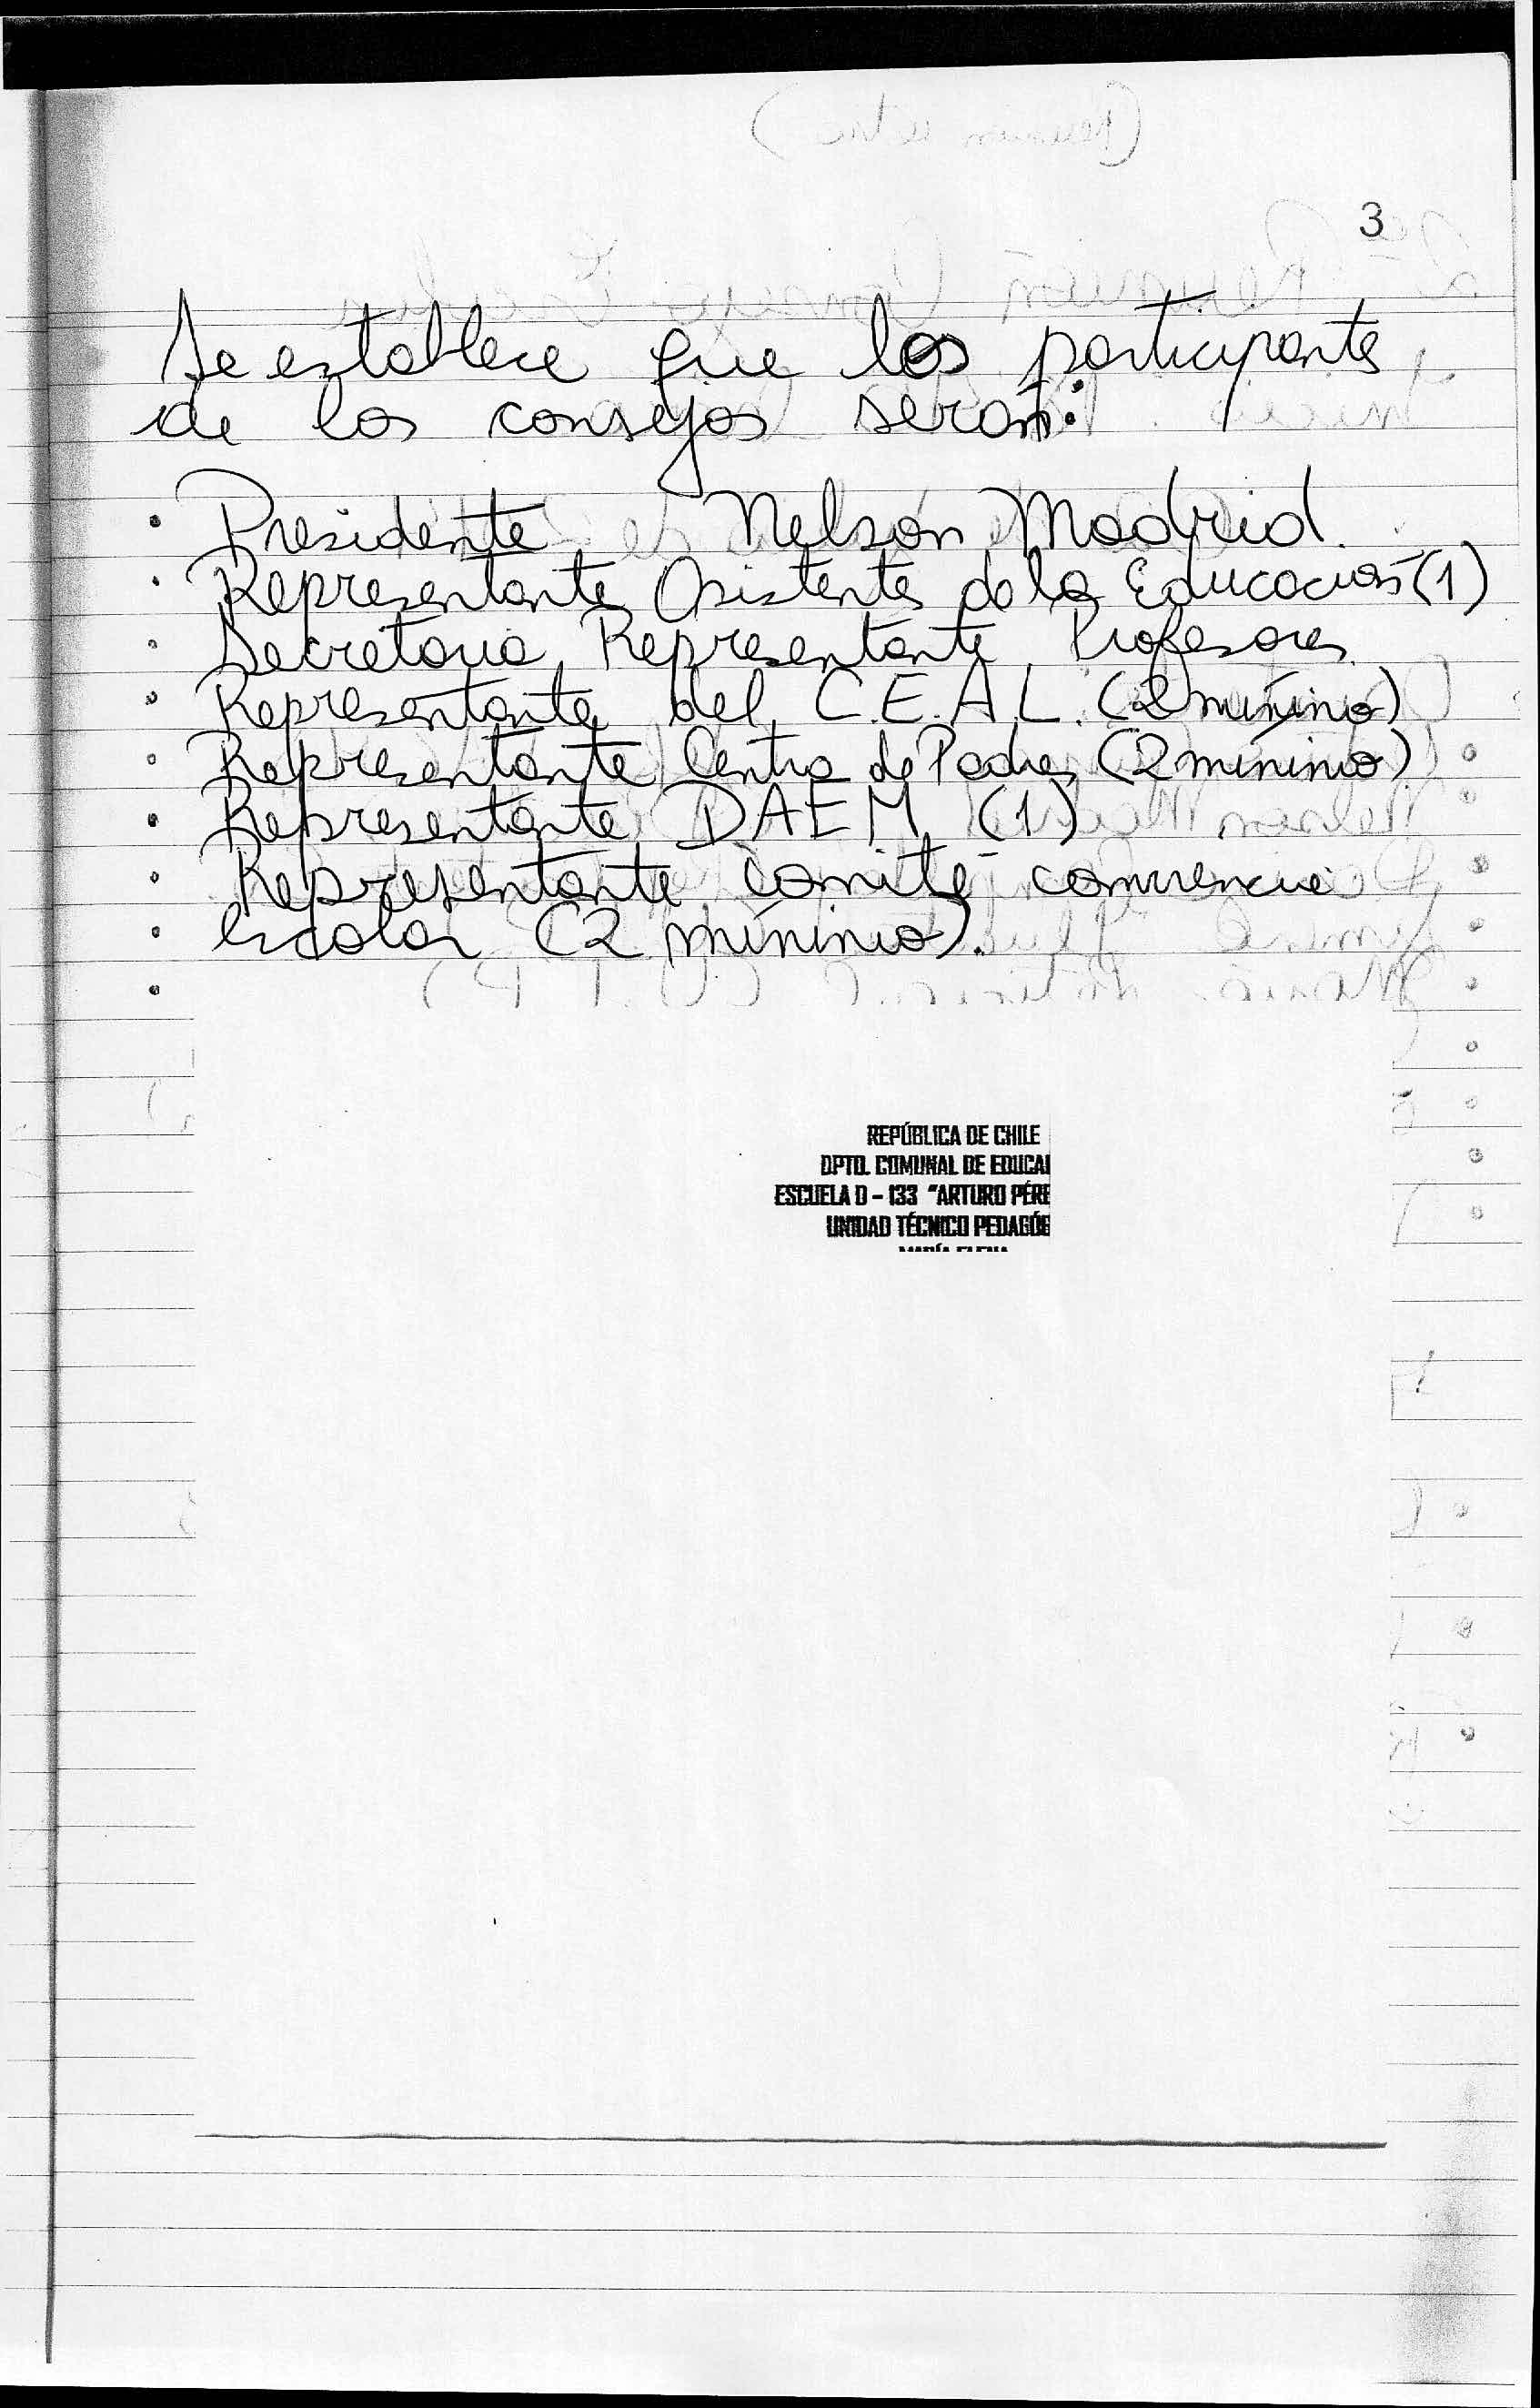 3
Se establece que los participantes
de los consejos serán:
• Presidente Nelson Madrid.
• Representante Asistentes de la Educación (1)
• Secretaria Representante Profesores
• Representante del C.E.A.L. (2 mínimo)
• Representante Centro de Padres (2 mínimo)
• Representante DAEM (1)
• Representante comité convivencia
• Escolar (2 mínimo).
•
REPÚBLICA DE CHILE
DPTO. COMUNAL DE EDUCA
ESCUELA D - 133 "ARTURO PÉRE
UNIDAD TÉCNICO PEDAGÓG
MARÍA ELENA